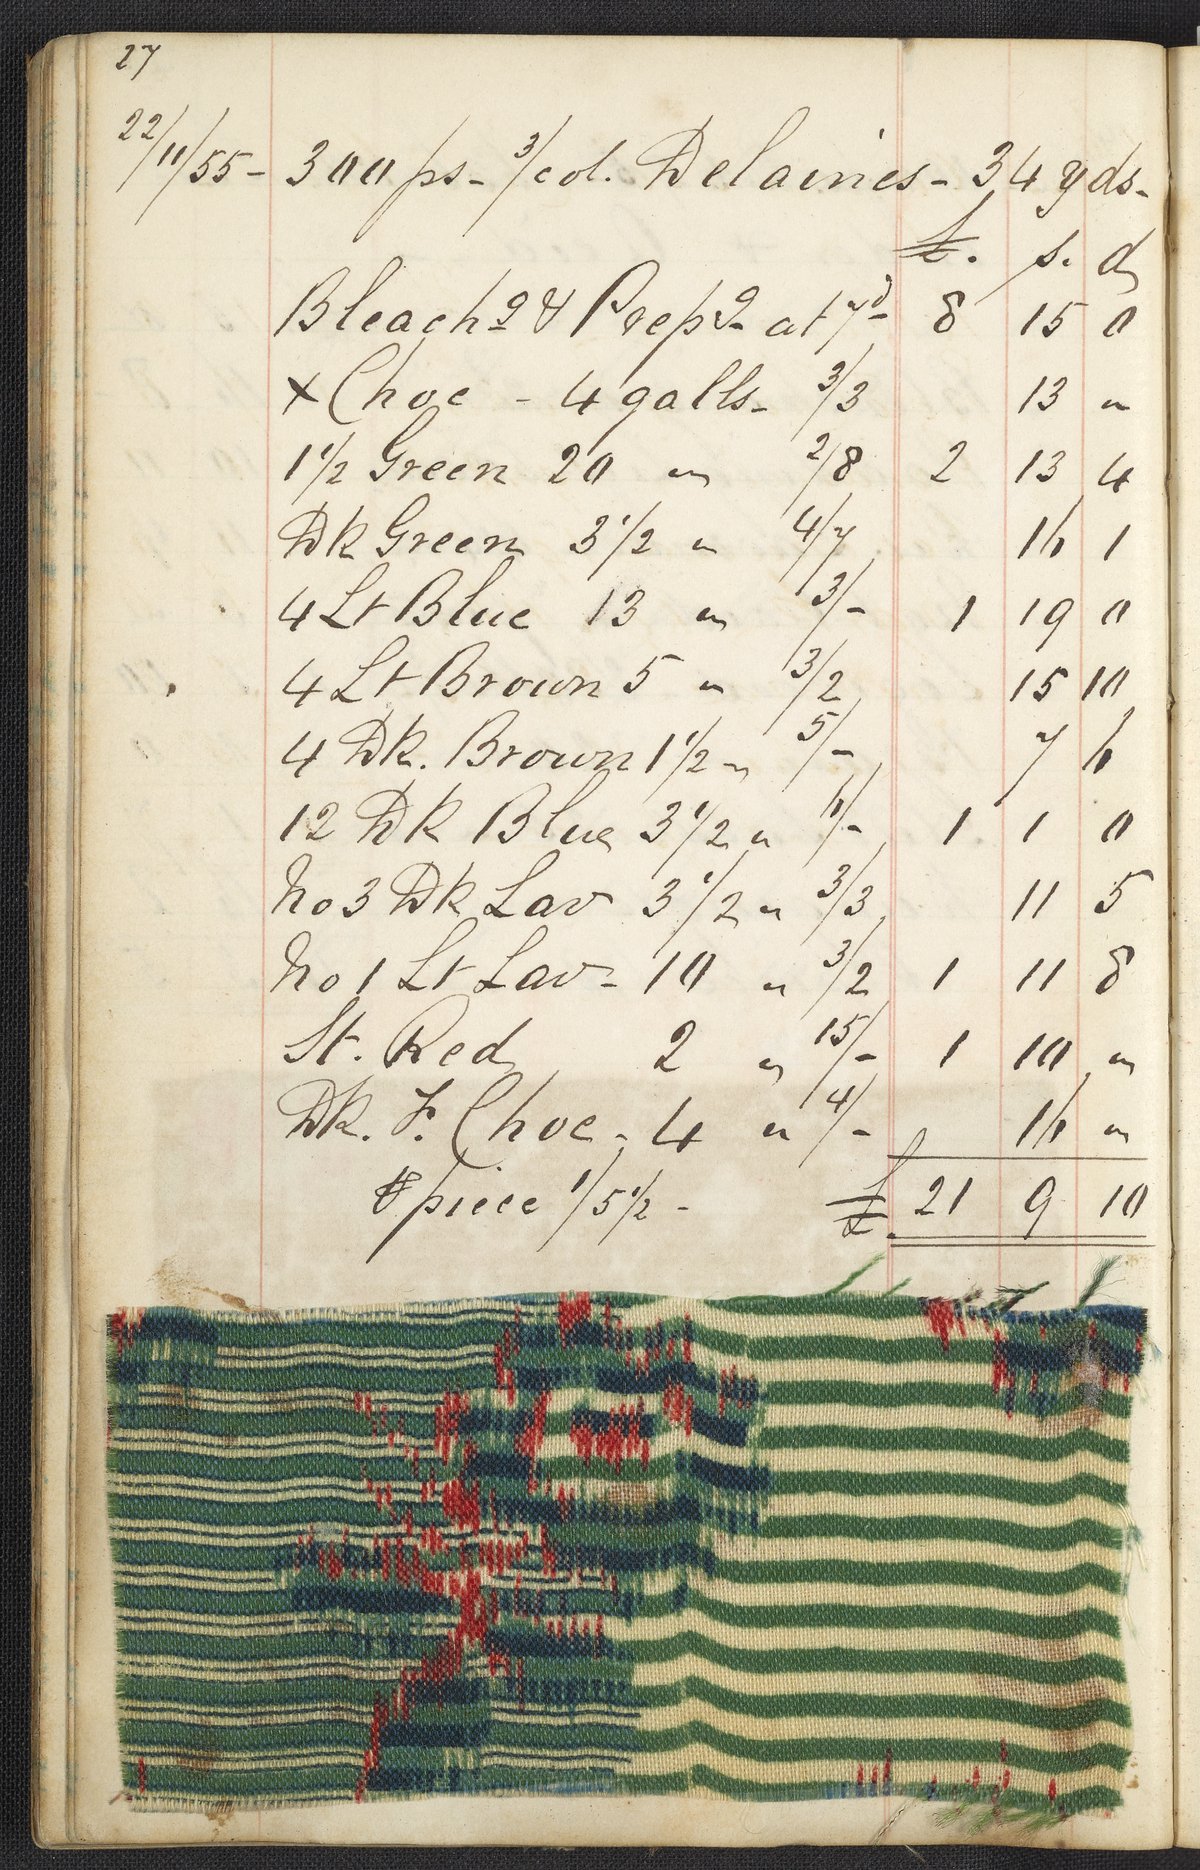 27
22/11/55 - 300 ps - 3/col. Delaines - 34 yds -
£. s. d
Bleachg & Prepg at 7d - 8 15 0
x Choc - 4 galls - 3/3 13 "
1 1/2 Green 20 " 2/8 2 13 4
Dk Green 3 1/2 " 4/7 16 1
4 Lt Blue 13 " 3/- 1 19 0
4 Lt Brown 5 " 3/2 15 10
4 Dk. Brown 1 1/2 " 5/- 7 6
12 Dk Blue 3 1/2 " 6/- 1 1 0
No 3 Dk Lav 3 1/2 " 3/3 11 5
No 1 Lt Lav - 10 " 3/2 1 11 8
St. Red 2 " 15/- 1 10 "
Dk. F. Choc - 4 " 4/- 16 "
piece 1/5 1/2 - £. 21 9 10